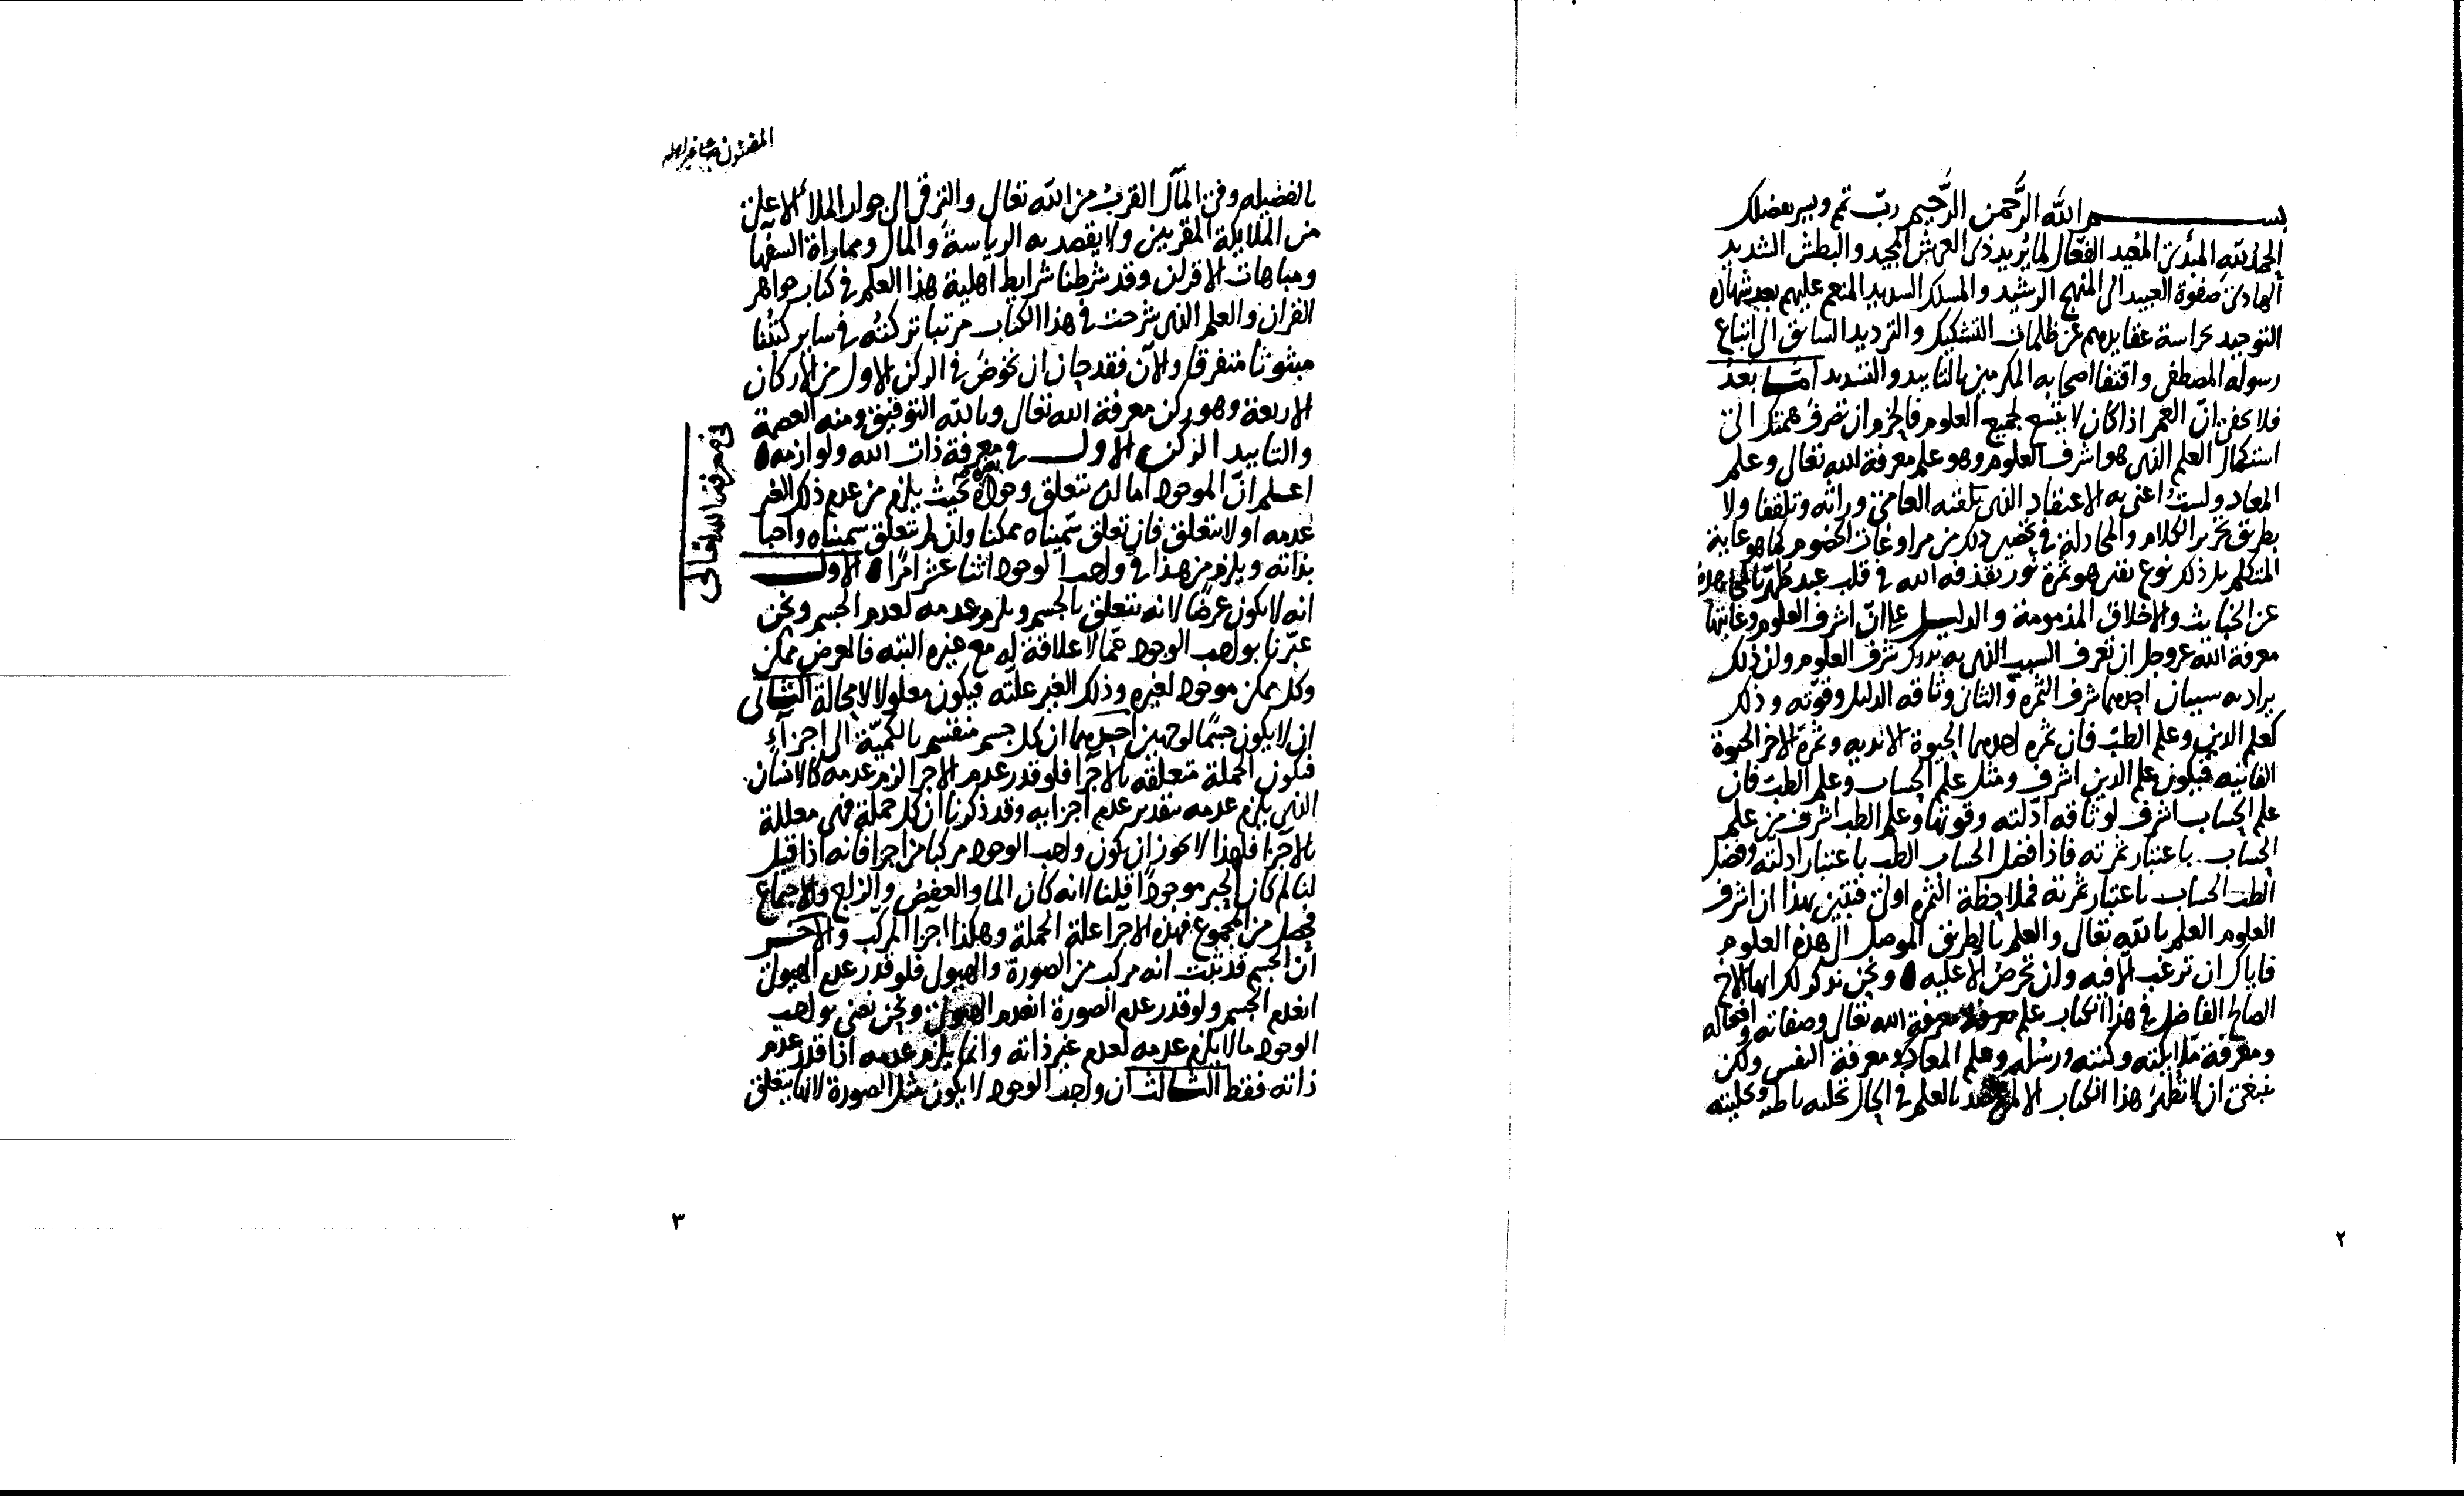 بسم الله الرَّحمن الرَّحيم ربّ تمم ويسر بفضلك
الحمد لله المبدئ المُعيد الفعّال لما يُريد ذى العرش المجيد والبطش الشديد
الهادى صفوة العبيد الى المنهج الرشيد والمسلك السديد المنعم عليهم بعد شهادة
التوحيد بحراسة عقايدهم عن ظلمات التشكيك والترديد السابق الى اتباع
رسوله المصطفى واقتفا اصحابه المكرمين بالتاييد والتسديد امّا بعدُ
فلا يخفى انّ العمر اذا كان لا يتسع لجميع العلوم فالحزم ان تصرف همتك الى
استكمال العلم الذى هو اشرف العلوم وهو علم معرفة الله تعالى وعلم
المعاد ولستُ اعنى به الاعتقاد الذى يلقنه العامىّ وراثة وتلقفا ولا
بطريق تحرير الكلام والمجادلة فى تحصين ذلك من مراوغات الخصوم كما هو غاية
المتكلم بل ذلك نوع يقين هو ثمرة نور يقذفه الله فى قلب عبد طهّر بالمجاهدة
عن الخبايث والاخلاق المذمومة والدليل على انّ اشرف العلوم وغايتها
معرفة الله عز وجل ان تعرف السبب الذى به يدرك شرف العلوم وان ذلك
يراد به سببان احدهما شرف الثمره والثانى وثاقه الدليل وقوّته وذلك
كعلم الدين وعلم الطبّ فان ثمره احدهما الحيوة الابديه وثمرة الاخر الحيوة
الفانيه فيكون علم الدين اشرف ومثل علم الحساب وعلم الطبّ فان
علم الحساب اشرف لوثاقه ادّلته وقوتها وعلم الطب اشرف من علم
الحساب باعتبار ثمرته فاذا فضل الحساب الطب باعتبار ادلّته وفضل
الطب الحساب باعتبار ثمرته فملاحظة الثمره اولى فتبين بهذا ان اشرف
العلوم العلم بالله تعالى والعلم بالطريق الموصل الى هذه العلوم
فاياك ان ترغب الا فيه وان تحرصُ الا عليه ونحن نذكر لك ايها الاخ
الصالح الفاضل فى هذا الكتاب علم معرفة الله تعالى وصفاته وافعاله
ومعرفة ملايكته وكتبه ورسُله وعلم المعاد ومعرفة النفس ولكن
ينبغى ان لا تظهرُ هذا الكتاب الا بالعلم فى الحال تحليه باطنه وتحليته
٢
بالفضيله وفى المآل القربُ من الله تعالى والترقى الى جوار الملأ الاعلى
من الملايكة المقربين ولا يقصد به الرياسة والمال ومماراة السفها
ومباهات الاقران وقد شرطنا شرايط اهلية هذا العلم فى كتاب جواهر
القران والعلم الذى شرحت فى هذا الكتاب مرتبا تركتهُ فى ساير كتبنا
مبثوثا متفرقا والآن فقد حان ان نخوض فى الركن الاول من الاركان
الاربعة وهو ركن معرفة الله تعالى وبالله التوفيق ومنه العصمة
والتاييد الركن الاول فى معرفة ذات الله ولوازمه
اعلم انّ الموجود اما ان يتعلق وجوده بغيره بحيث يلزم من عدم ذلك الغير
عدمه او لا يتعلق فان تعلق سمّيناه ممكنا وان لم يتعلق سميناه واجبا
بذاته ويلزم من هذا فى واجب الوجود اثنا عشر امرًا الاول
انه لا يكون عرضًا لانه يتعلق بالجسم ويلزم عدمه لعدم الجسم ونحن
عبّرنا بواجب الوجود عمّا لا علاقة له مع غيره البته فالعرض ممكن
وكل ممكن موجود لغيره وذلك الغير علته فيكون معلولا لا محالة الثانى
ان لا يكون جسمًا لوجهين احدهما ان كل جسم منقسم بالكميّة الى اجزآء
فتكون الجملة متعلقه بالاجزا فلو قدر عدم الاجزا لزم عدمه كالانسان
الذى يلزم عدمه بتقدير عدم اجزايه وقد ذكرنا ان كل جملة فهى معللة
بالاجزا فلهذا لا يجوز ان يكون واجب الوجود مركبا من اجزا فانه اذا قيل
لنا لم كان الحبر موجودًا قلنا لانه كان الما والعفص والزاج والاجتماع
فحصل من المجموع فهذه الاجزا علة الجملة وهكذا اجزا المركّب والاخر
ان الجسم قد ثبت انه مركب من الصورة والهيولى فلو قدر عدم الهيولى
انعدم الجسم ولو قدر عدم الصورة انعدم الهيولى ونحن نعنى بواجب
الوجود ما لا يلزم عدمه لعدم غير ذاته وانما يلزم عدمه اذا قدر عدم
ذاته فقط الثالث ان واجب الوجود لا يكون مثل الصورة لانها يتعلق
فى معرفت الله تعالى
٣